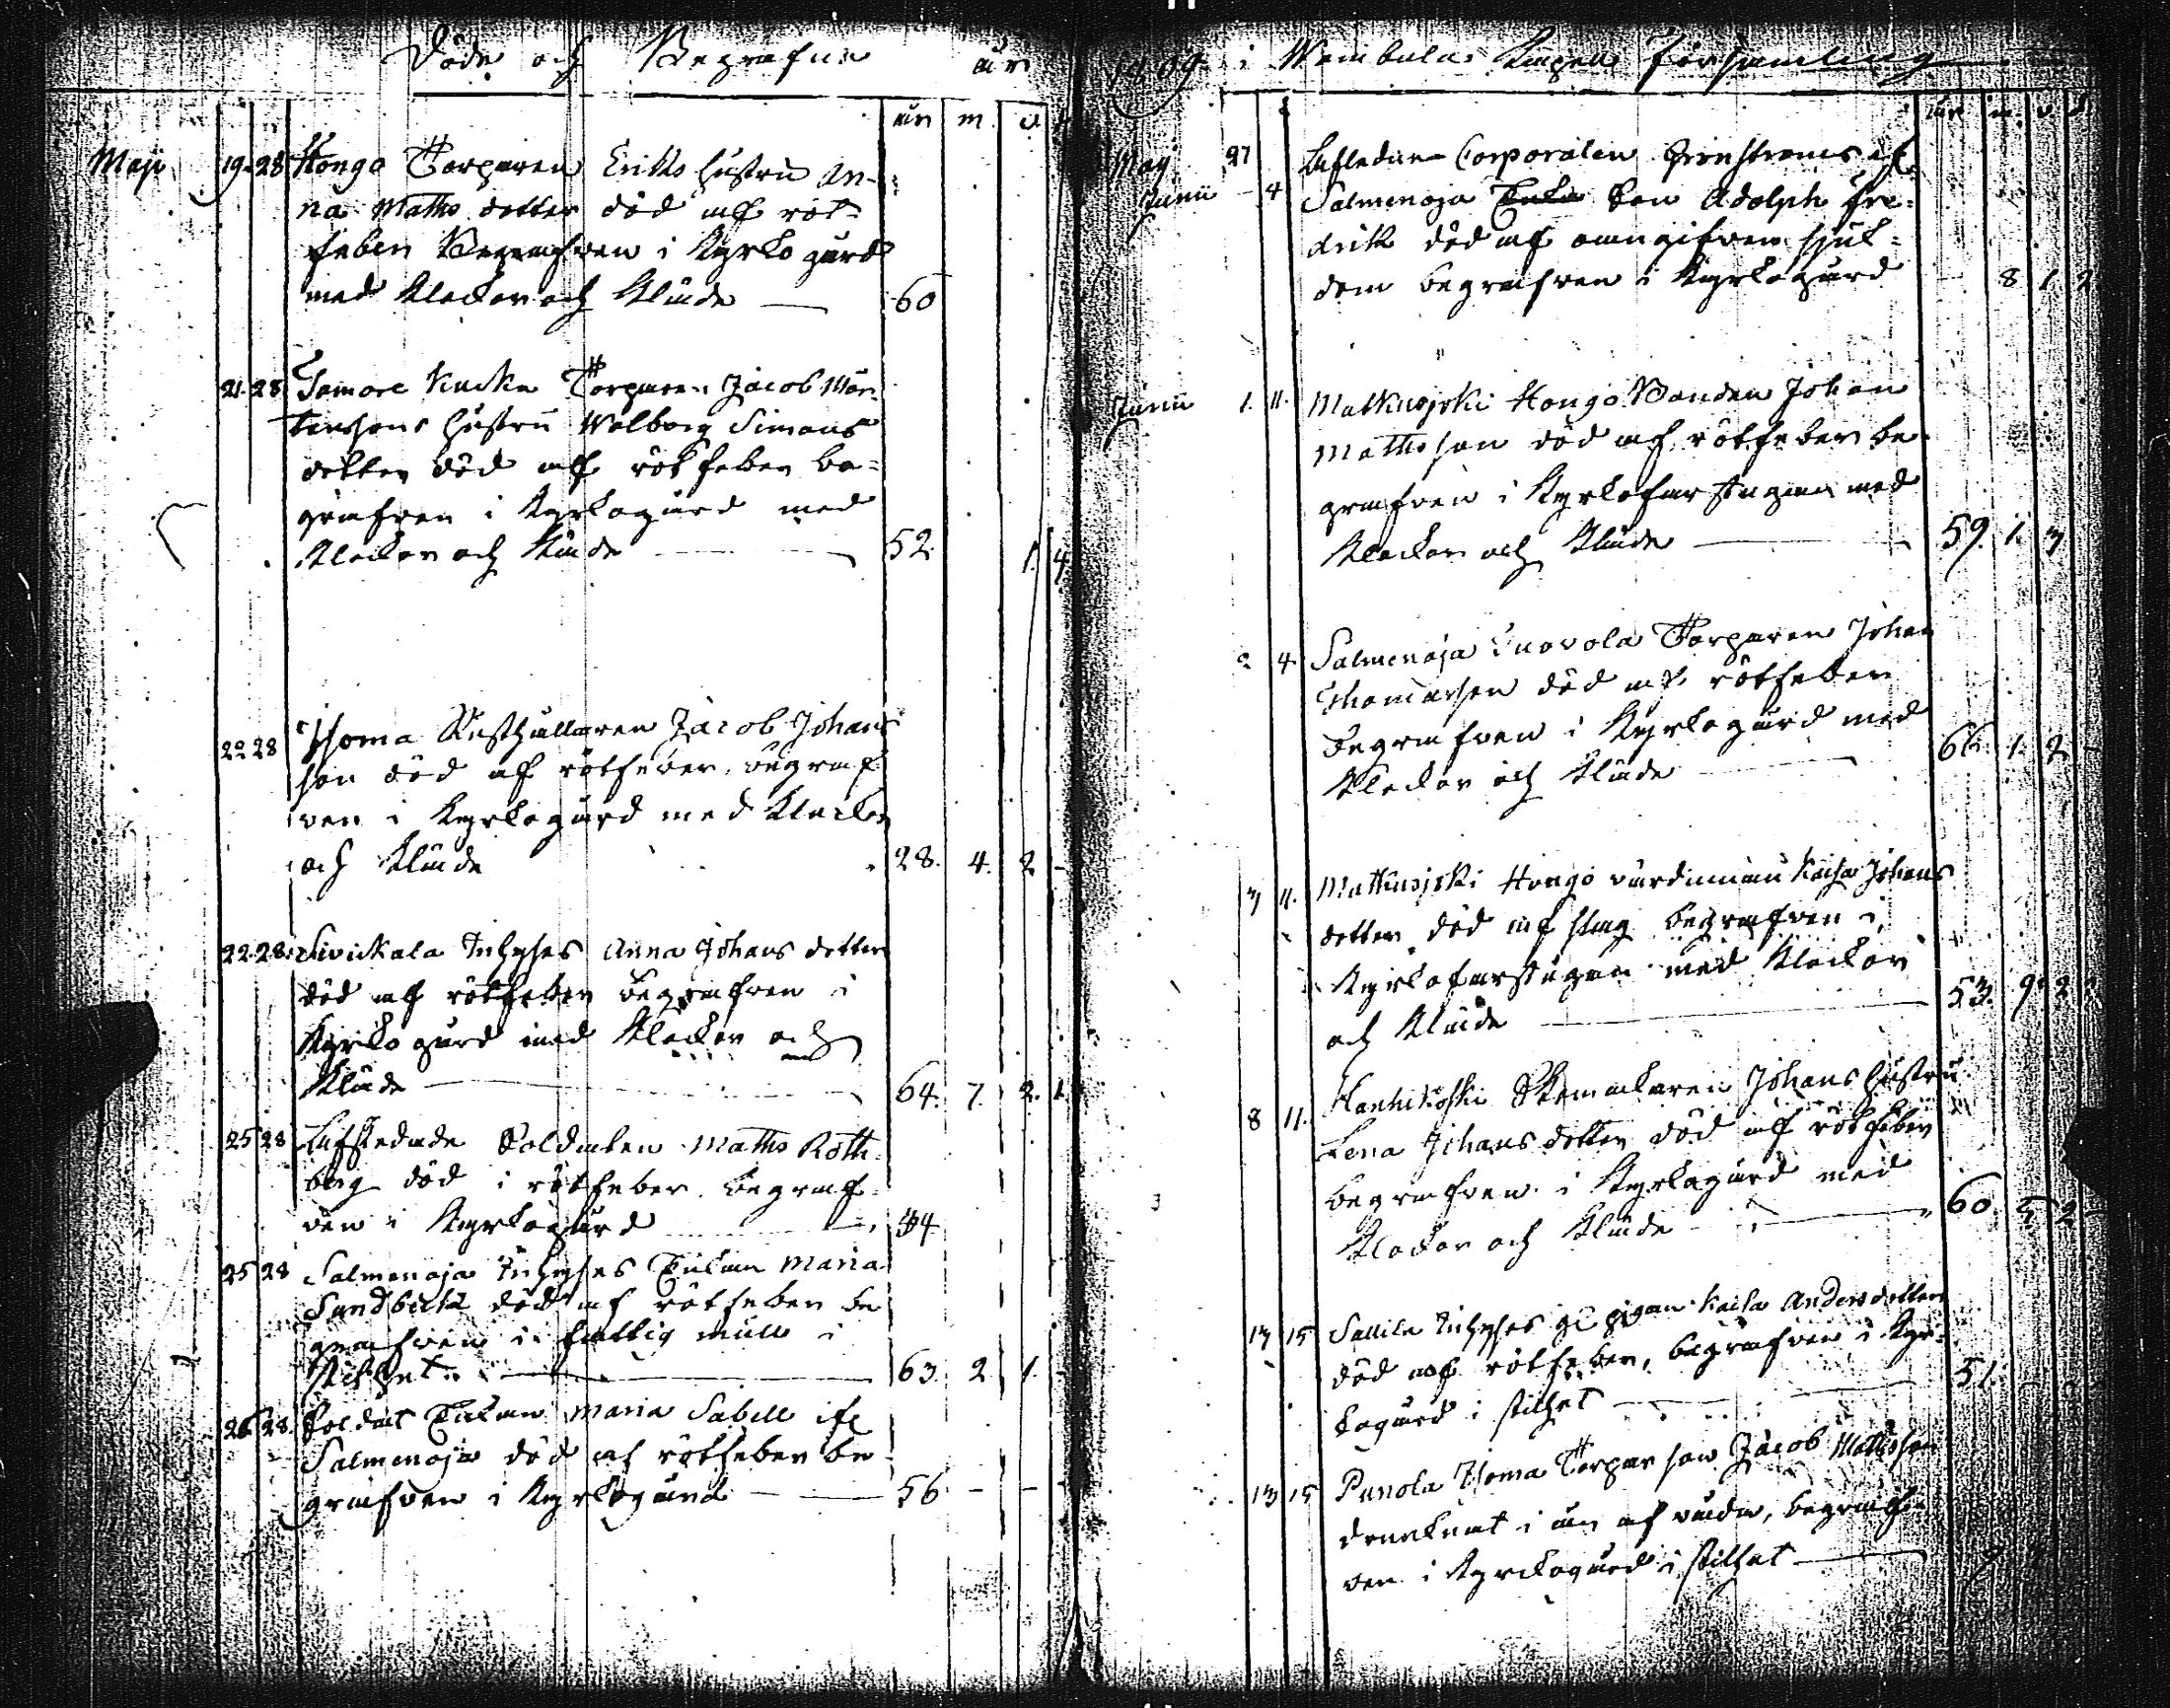 Döde och Begrafne år
år m. v
Maji 19. 28 Hongo Torparen Eriks hustru An-
na Matts dotter död af röt
feber Begrafven i Kyrkogård
med Klockor och Kläde — 60
21. 28 Torparen Jacob Mår-
tenssons hustru Walborg Simons
dotter död af rötfeber be-
grafven i Kyrkogård med
Klockor och Kläde — 52. 1. 4
22 28 Thoma Rusthållaren Jacob Johans
son död af rötfeber, begraf
ven i Kyrkogård med Klockor
och Kläde 28. 4. 2 -
22. 28. Inhyses Anna Johans dotter
död af rötfeber begrafven i
Kyrkogård med Klockor och
Kläde — 64. 7. 2. 1
25 28 Soldaten Matts Roth-
berg död i rötfeber begraf-
ven i Kyrkogård — 44
25 28 Salmenoja Inhyses Enkan Maria
Sundbeck död af rötfeber be
grafven i fattig mull i
stillhet — 63. 2. 1. -
26 28. Soldat Enkan Maria Sabell if
Salmenoja död af rötfeber be
grafven i Kyrkogård — 56. - -
1809 i Kapell Församling
år m. v d
May 27 Corporalen Grönströms if
Junii 4 Salmenoja Son Adolph Fre-
drik död af oangifven sjuk-
dom begrafven i Kyrkogård 8 1 2
Junii 1. 11. Matkusjoki Hongo Bonden Johan
Mattsson död af rötfeber be
grafven i Kyrkoförstugan med
Klockor och Kläde — 59. 1. 3
2 4. Salmenoja Torparen Johan
Thomasson död af rötfeber
Begrafven i Kyrkogård med
Klockor och Kläde 66. 1. 2 -
7 11. Matkusjoki Hongo Kaisa Johans
dotter död af slag begrafven i
Kyrkoförstugan med Klockor
och Kläde — 53. 9. 2
8 11. Hanhikoski Skomakaren Johans hustru
Lena Johans dotter död af rötfeber
begrafven i Kyrkogård med
Klockor och Kläde — 60. 5 2 -
13 15 Inhyses pigan Kaisa Anders dotter
död af rötfeber, begrafven i Kyr-
kogård i stillhet — 51.
13 15 Punola Thoma Torpar son Jacob Mattsson
drunknat i ån af våda, begraf-
ven i Kyrkogård i stillhet —